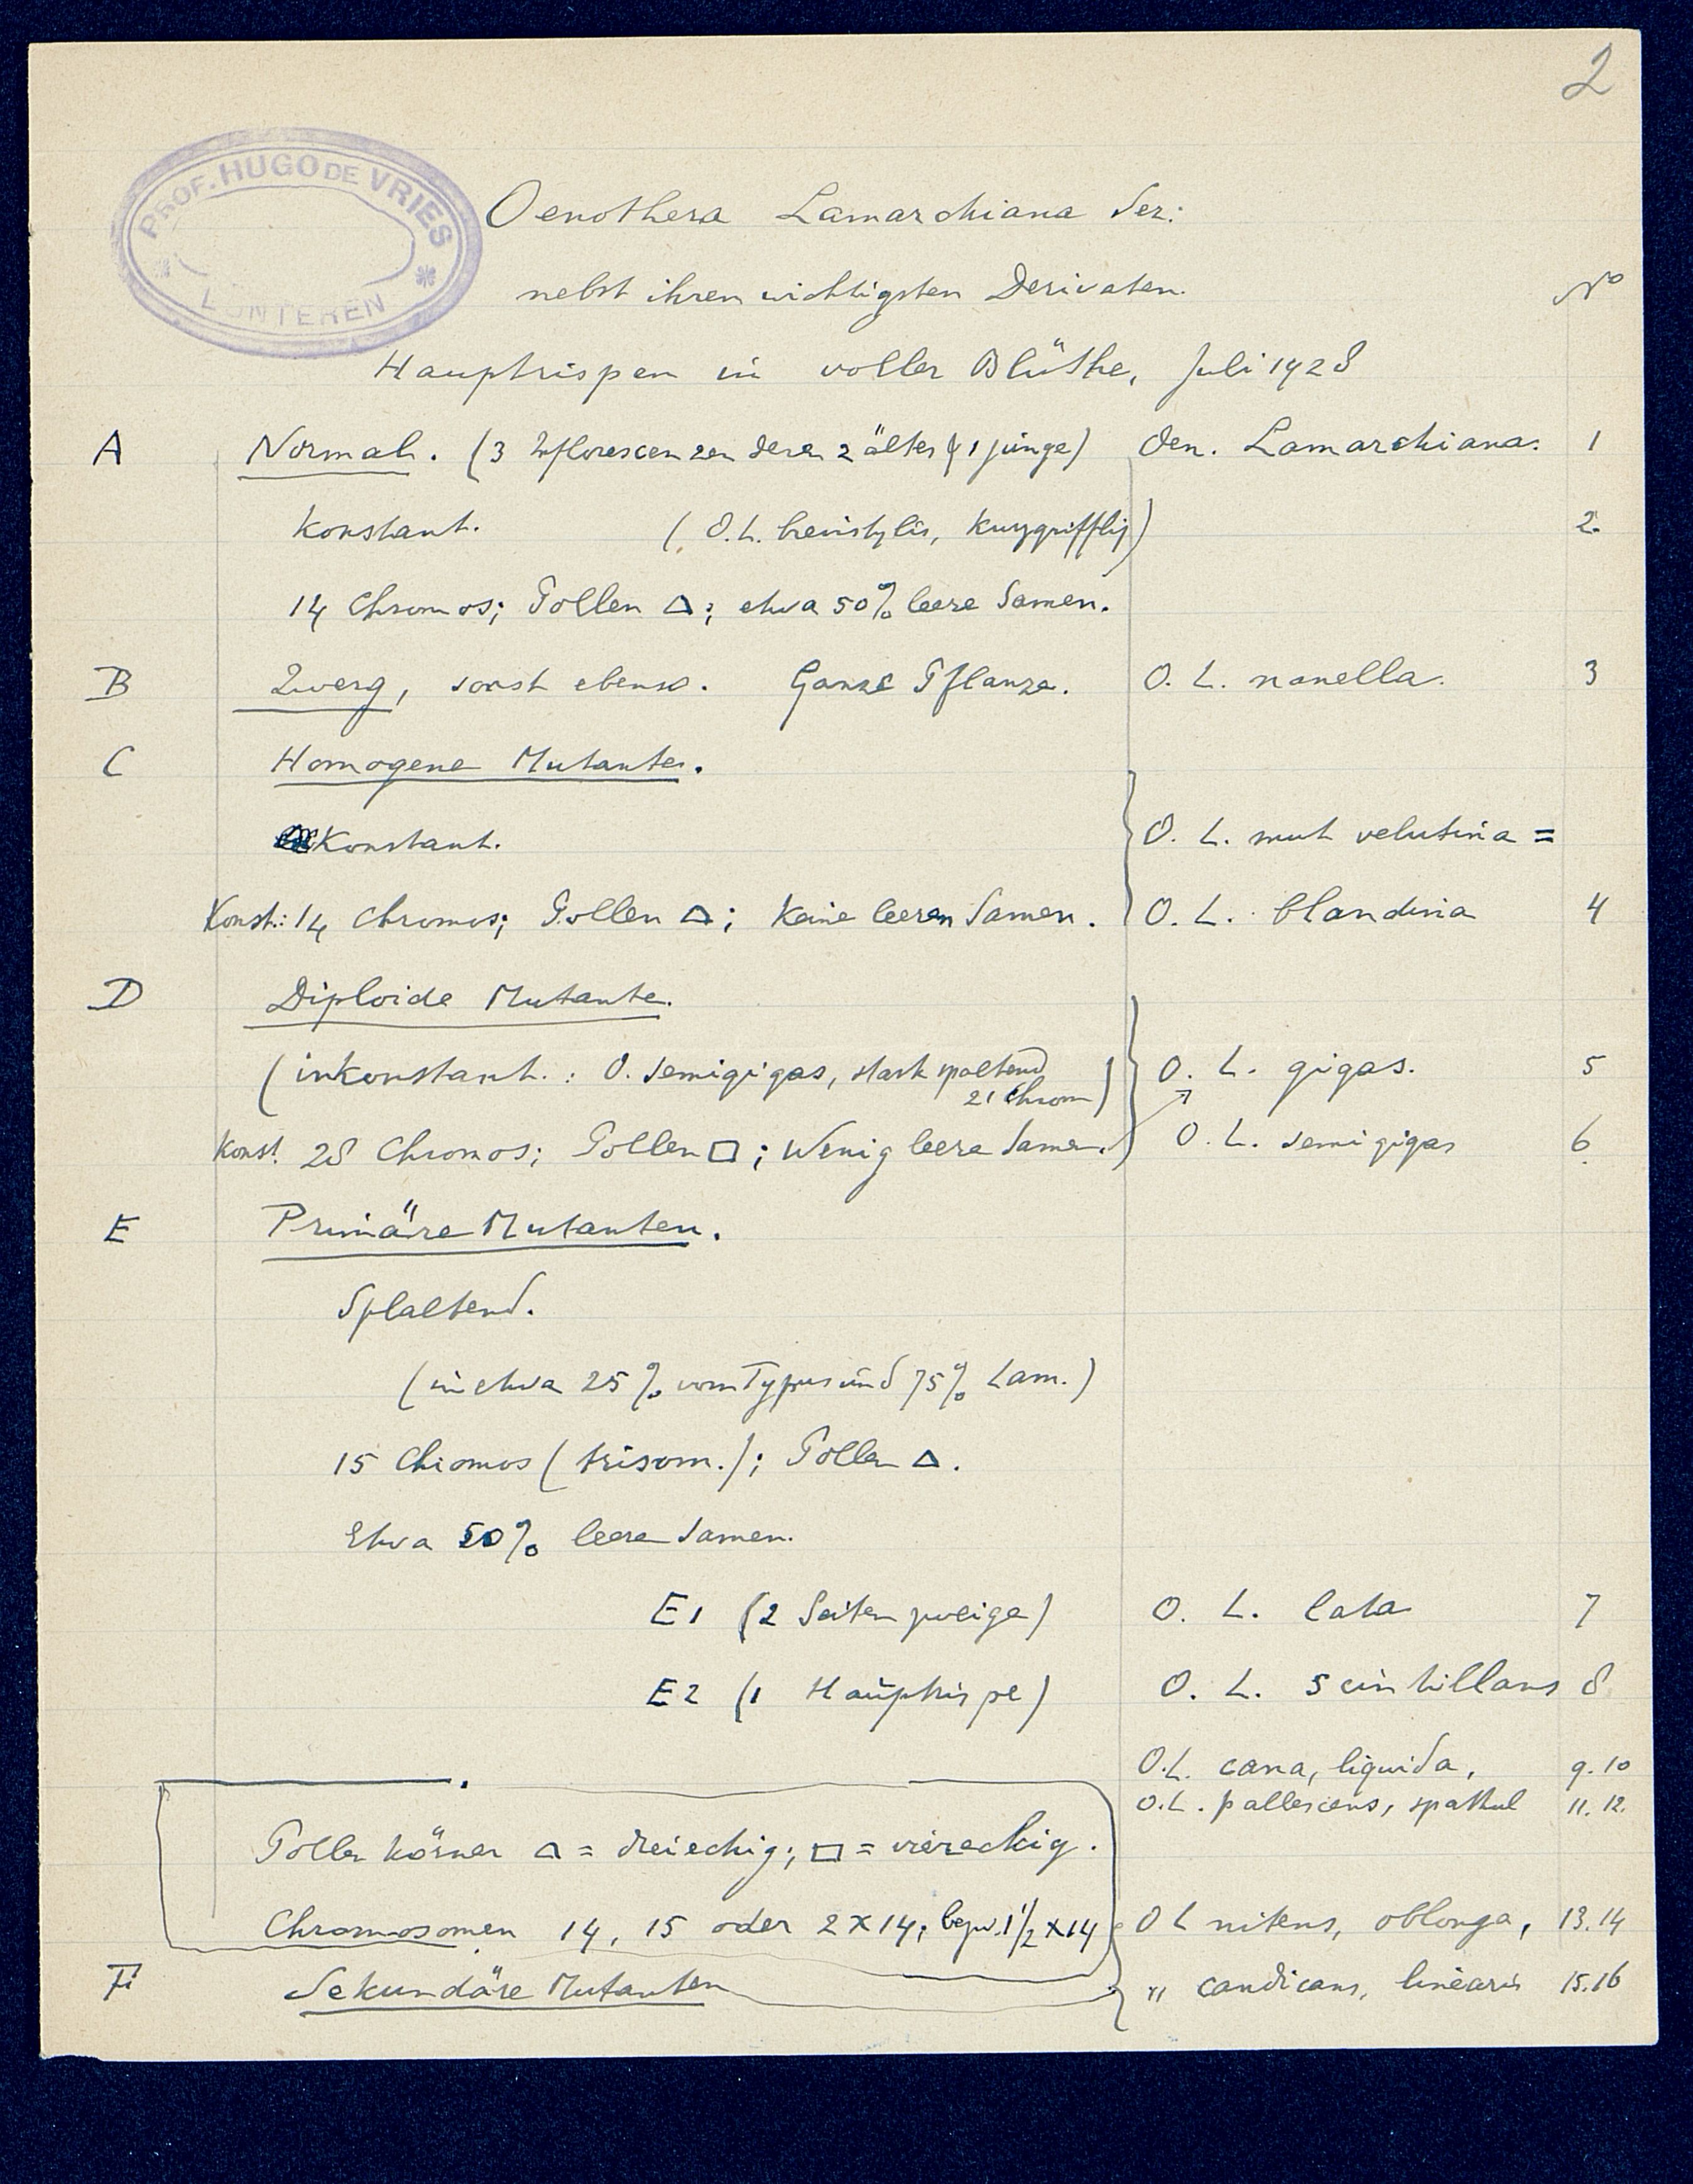 2
PROF. HUGO DE VRIES
LUNTEREN
Oenothera Lamarckiana Ser:
nebst ihren wichtigsten Derivaten. No
Hauptrispen in voller Blüthe, Juli 1928
A Normal. (3 Inflorescenzen deren 2 ältere & 1 junge) Oen. Lamarckiana. 1
Konstant. (O. L. brevistylis, Kurzgrifflig) 2.
14 Chromos; Pollen △; etwa 50% leere Samen.
B Zwerg, sonst ebenso. Ganze Pflanze. O. L. nanella. 3
C Homogene Mutanten.
Konstant. O. L. mut velutina =
Konst: 14 Chromos; Pollen △; Keine leeren Samen. O. L. blandina 4
D Diploide Mutante.
(inkonstant.: O. semigigas, stark spaltend O. L. gigas. 5
21 Chrom)
Konst. 28 Chromos; Pollen □; Wenig leere Samen. O. L. semigigas 6
E Primäre Mutanten.
Splaltend.
(in etwa 25% vom Typus und 75% Lam.)
15 Chromos (trisom.); Pollen △.
Etwa 50% leere Samen.
E1 (2 Seitenzweige) O. L. lata 7
E2 (1 Hauptrispe) O. L. scintillans 8
O.L. cana, liquida, 9. 10
O.L. pallescens, spathul 11. 12.
Pollenkörner △ = dreieckig; □ = viereckig.
Chromosomen 14, 15 oder 2×14; bezw. 1 1/2 ×14 O L nitens, oblonga, 13. 14
F Sekundäre Mutanten " candicans, linearis 15. 16